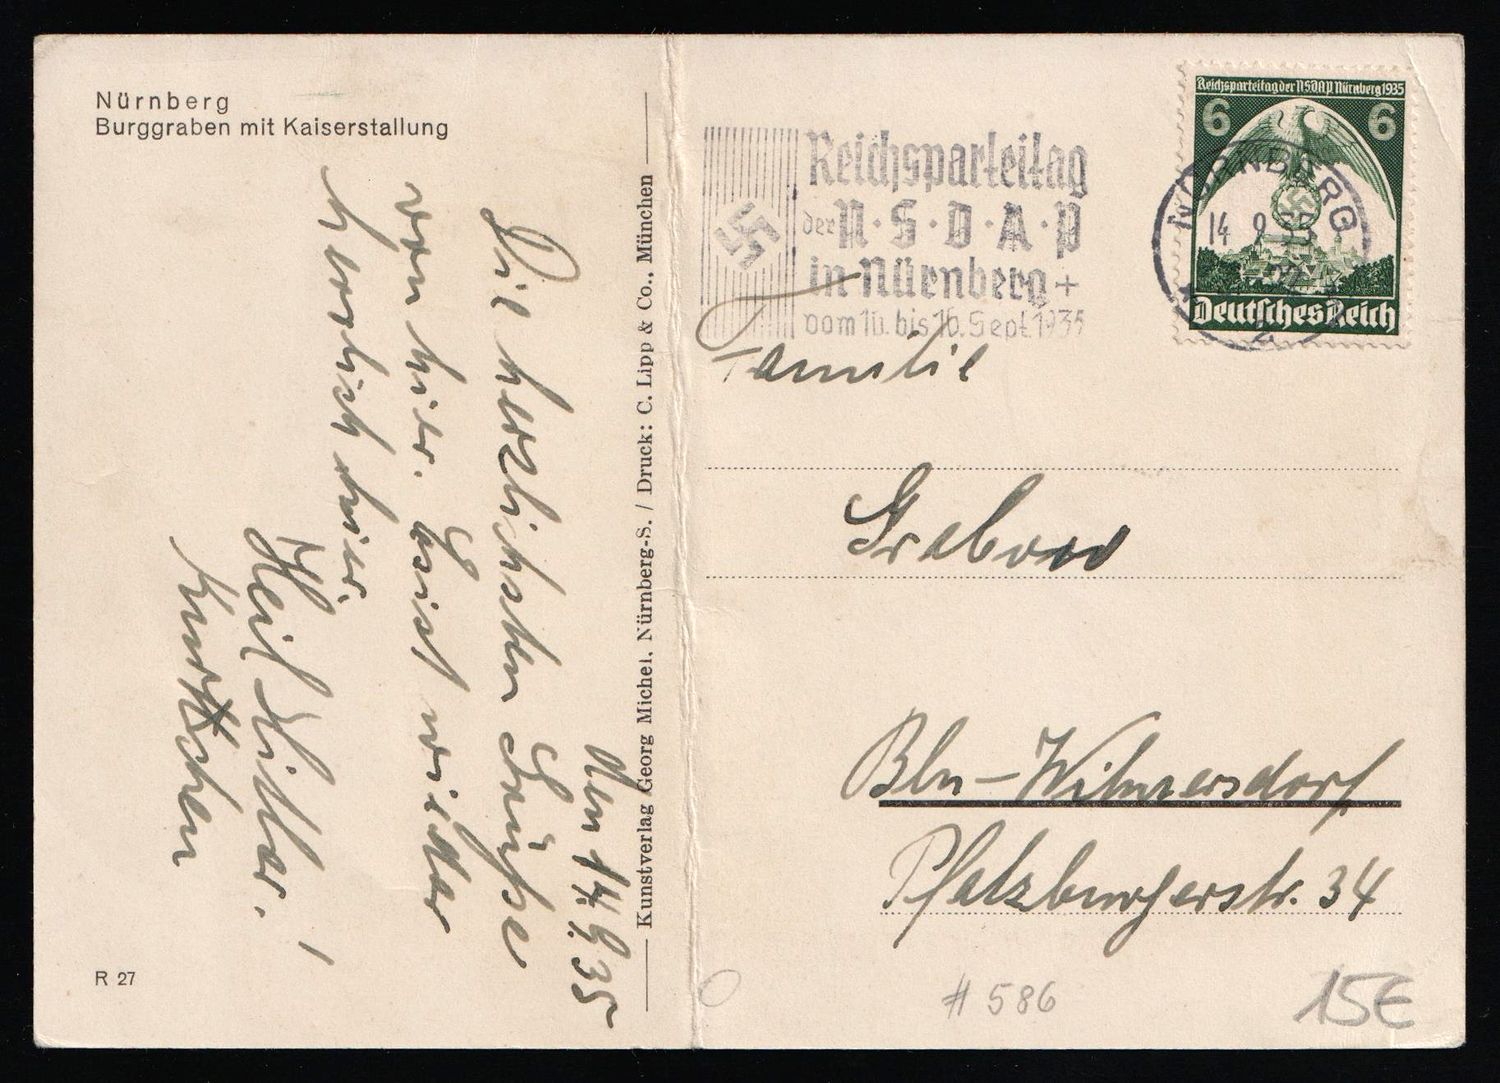 Nürnberg
Burggraben mit Kaiserstallung
den 14.9.35
Die herzlichsten Grüße
von hier. Es ist wieder
herrlich hier.
Heil Hitler!
Kurtchen
R 27
Kunstverlag Georg Michel, Nürnberg-S. / Druck: C. Lipp & Co., München
Reichsparteitag
der N·S·D·A·P
in Nürnberg +
vom 10. bis 16. Sept 1935
Reichsparteitag der NSDAP Nürnberg 1935
6 6
Deutsches Reich
NÜRNBERG
14 9 35
2
Familie
Grabow
Bln-Wilmersdorf
Pfalzburgerstr. 34
# 586
15€